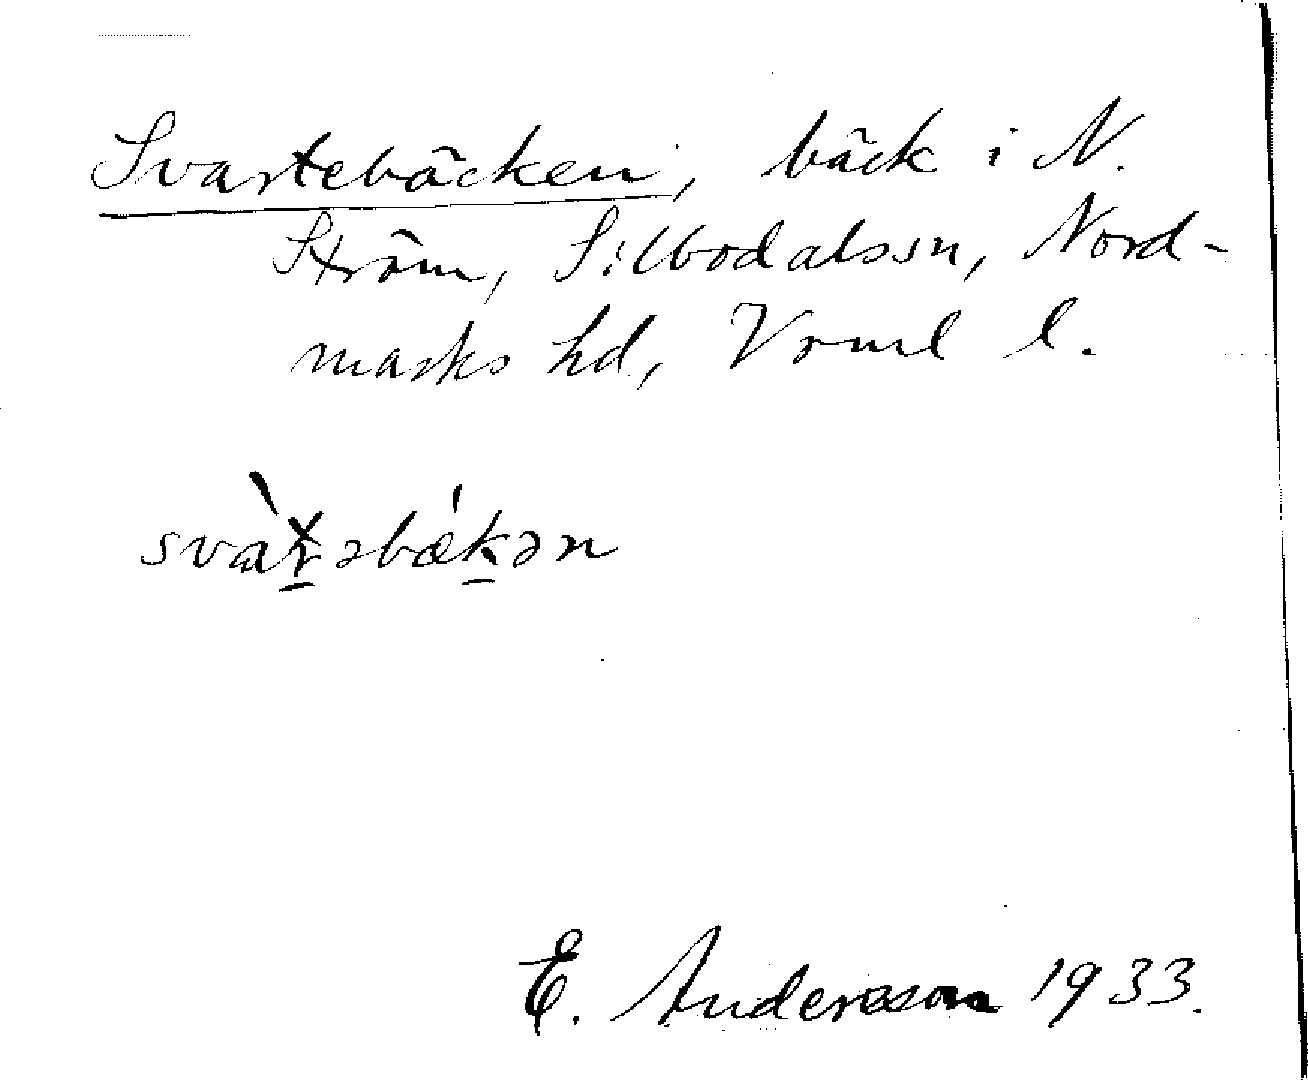 Svartebäcken, bäck i N.
Ström, Silbodalssn, Nord-
marks hd, Vrml l.
svàt̲əbǽk̲ən
E. Andersson 1933.